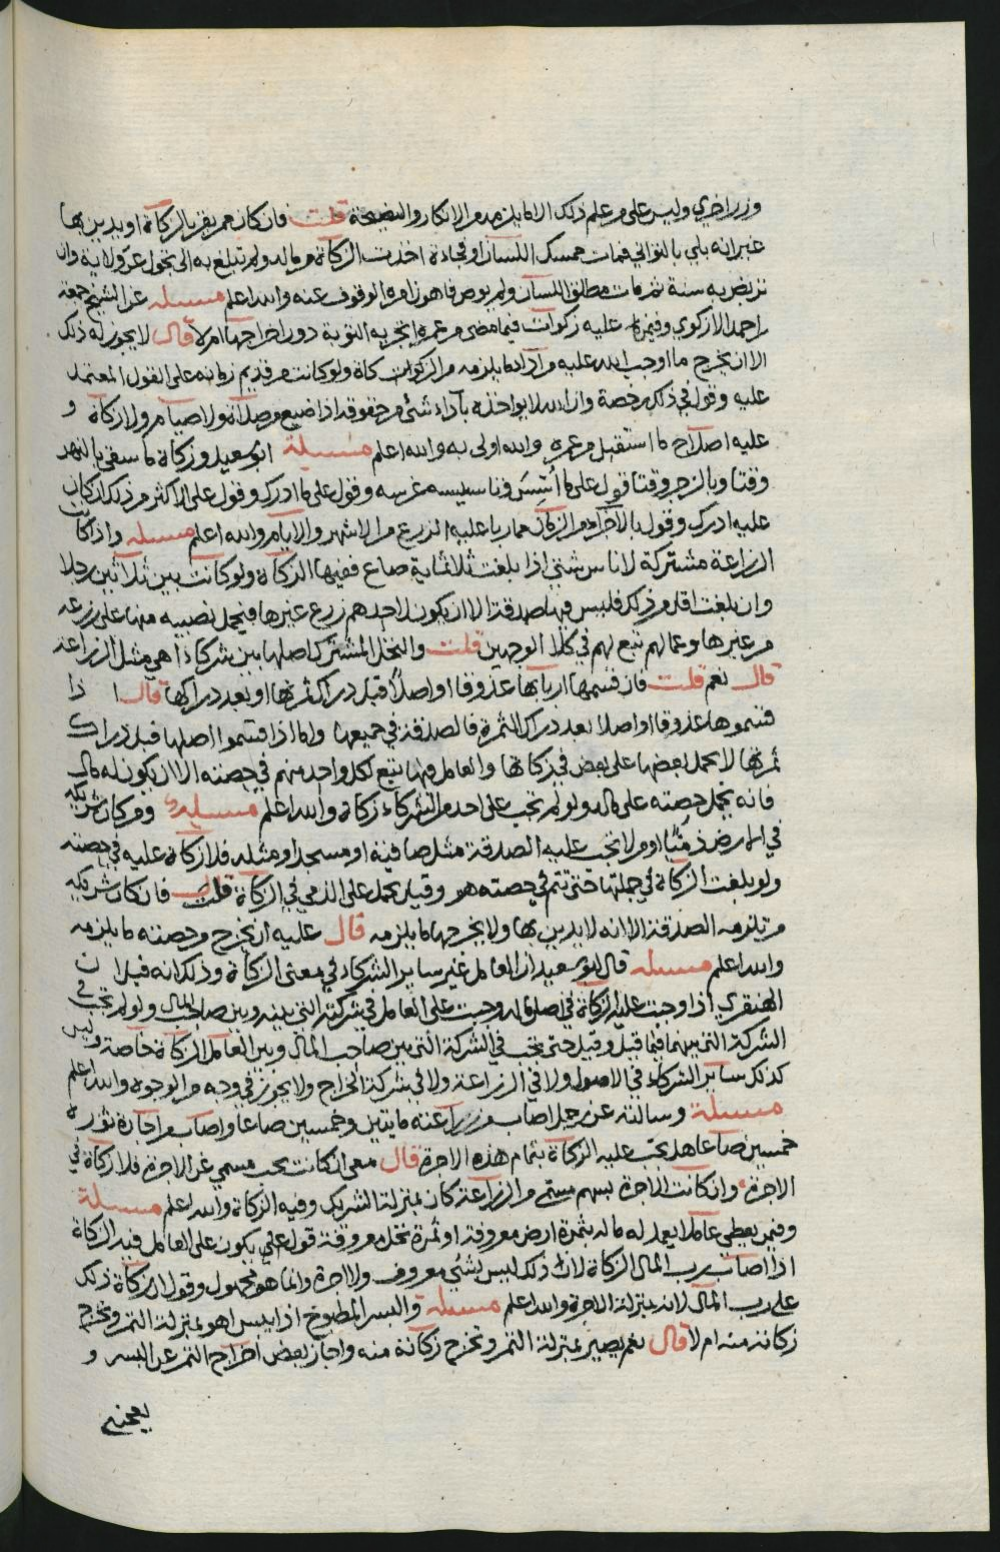 وزر اخرى وليس على من علم ذلك الا ما يلزمه من الانكار والنصيحة قلت فان كان ممن يقر بالزكاة او يدين بها
غير انه بلي بالتواني فمات ممسك اللسان او فجاءة اخذت الزكاة من ماله ولم تبلغ به الى تحول عن ولاية وان
تربص به سنة ثم مات مطلق اللسان ولم يوص فاهون امره الوقوف عنه والله اعلم مسئله عن الشيخ جمعة
بن احمد الازكوي وفيمن عليه زكوات فيما مضى من عمره ايجزيه التوبة دون اخراجها ام لا قال لا يجوز له ذلك
الا ان يخرج ما اوجب الله عليه من اداء ما يلزمه من الزكوات كاة ولو كانت من قديم زمانه على القول المعتمد
عليه وقول في ذلك رخصة وان الله لا يواخذه باداء شئ من حقوقه اذا ضيع من صلاة ولا صيام ولا زكاة و
عليه اصلاح ما استقبل من عمره والله اولى به والله اعلم مسئلة ابو سعيد وزكاة ما سقي بالنهر
وقتا وبالزجر وقتا قول على ما أسّسَ وتاسيسه غرسه وقول على ما ادرك وقول على الاكثر من ذلك ان كان
عليه ادرك وقول بالاجزاء من الزمان مما ربا عليه الزرع من الاشهر والايام والله اعلم مسئله واذا كانت
الزراعة مشتركة لاناس شتى اذا بلغت ثلاثماية صاع ففيها الزكاة ولو كانت بين ثلاثين رجلا
وان بلغت اقل من ذلك فليس فيها صدقة الا ان يكون لاحدهم زرع غيرها فيحمل نصيبه منها على زرعه
من غيرها وعمالهم تبع لهم في كلا الوجهين قلت والنخل المشترك اصلها بين شركاء اهي مثل الزراعة
قال نعم قلت فان قسمها اربابها عذوقا او اصلا قبل دراك ثمرتها او بعد دراكها قال اذا
قسموها عذوقا او اصلا بعد دراك الثمرة فالصدقة في جميعها واما اذا قسموا اصلها قبل دراك
ثمرتها لا يحمل بعضها على بعض في زكاتها والعامل فيها تبع لكل واحد منهم في حصته الا ان يكون له مال
فانه يحمل حصته على ماله ولو لم تجب على احد من الشركاء زكاة والله اعلم مسئلة ومن كان شريكه
في ارض ذميّا او من لا تجب عليه الصدقة مثل صافية او مسجد او مثله فلا زكاة عليه في حصته
ولو بلغت الزكاة في جملتها حتى تتم في حصته هو وقيل يحمل على الذمي في الزكاة قلت فان كان شريكه
من تلزمه الصدقة الا انه لا يدين بها ولا يخرجها ما يلزمه قال عليه ان يخرج من حصته ما يلزمه
والله اعلم مسئله قال ابو سعيد ان العامل غير ساير الشركاء في معنى الزكاة وذلك انه قيل ان
الهنقري اذا وجبت عليه الزكاة في اصل ماله وجبت على العامل في شركته التي بينه وبين صاحب المال ولو لم تجب في
الشركة التي بينهما فيما قيل وقيل حتى تجب في الشركة التي بين صاحب المال وبين العامل الزكاة خاصة وليس
كذلك ساير الشركاء في الاصول ولا في الزراعة ولا في شركة الخراج ولا يجوز في وجه من الوجوه والله اعلم
مسئلة وسالته عن رجل اصاب من زراعته مايتين وخمسين صاعا واصاب من اجارة ثوره
خمسين صاعا هل تجب عليه الزكاة بتمام هذه الاجرة قال معي ان كانت بحب مسمى غير الاجرة فلا زكاة في
الاجرة وان كانت الاجرة بسهم مسمى من الزراعة كان بمنزلة الشريك وفيه الزكاة والله اعلم مسئلة
وفيمن يعطي عاملا يعمل له ماله بثمرة ارض معروفة او ثمرة نخل معروفة قول على يكون على العامل فيه الزكاة
اذا اصاب رب المال الزكاة لان ذلك ليس بشئ معروف ولا اجرة وانما هو مجهول وقول ان زكاة ذلك
على رب المال لانه بمنزلة الاجرة والله اعلم مسئله والبسر المطبوخ اذا يبس اهو بمنزلة التمر وتخرج
زكاته منه ام لا قال نعم يصير بمنزلة التمر وتخرج زكاته منه واجاز بعض اخراج التمر عن البسر و